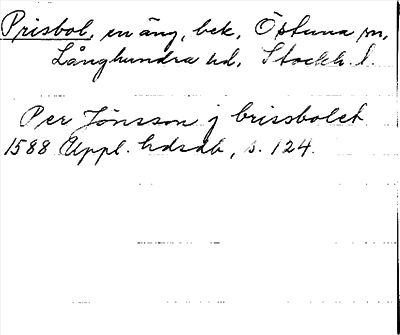 Prisbol, en äng, bek. Östuna sn,
Långhundra hd, Stockh. l.
Per Jönsson j brissbolet
1588 Uppl. hdsdb, s. 124.